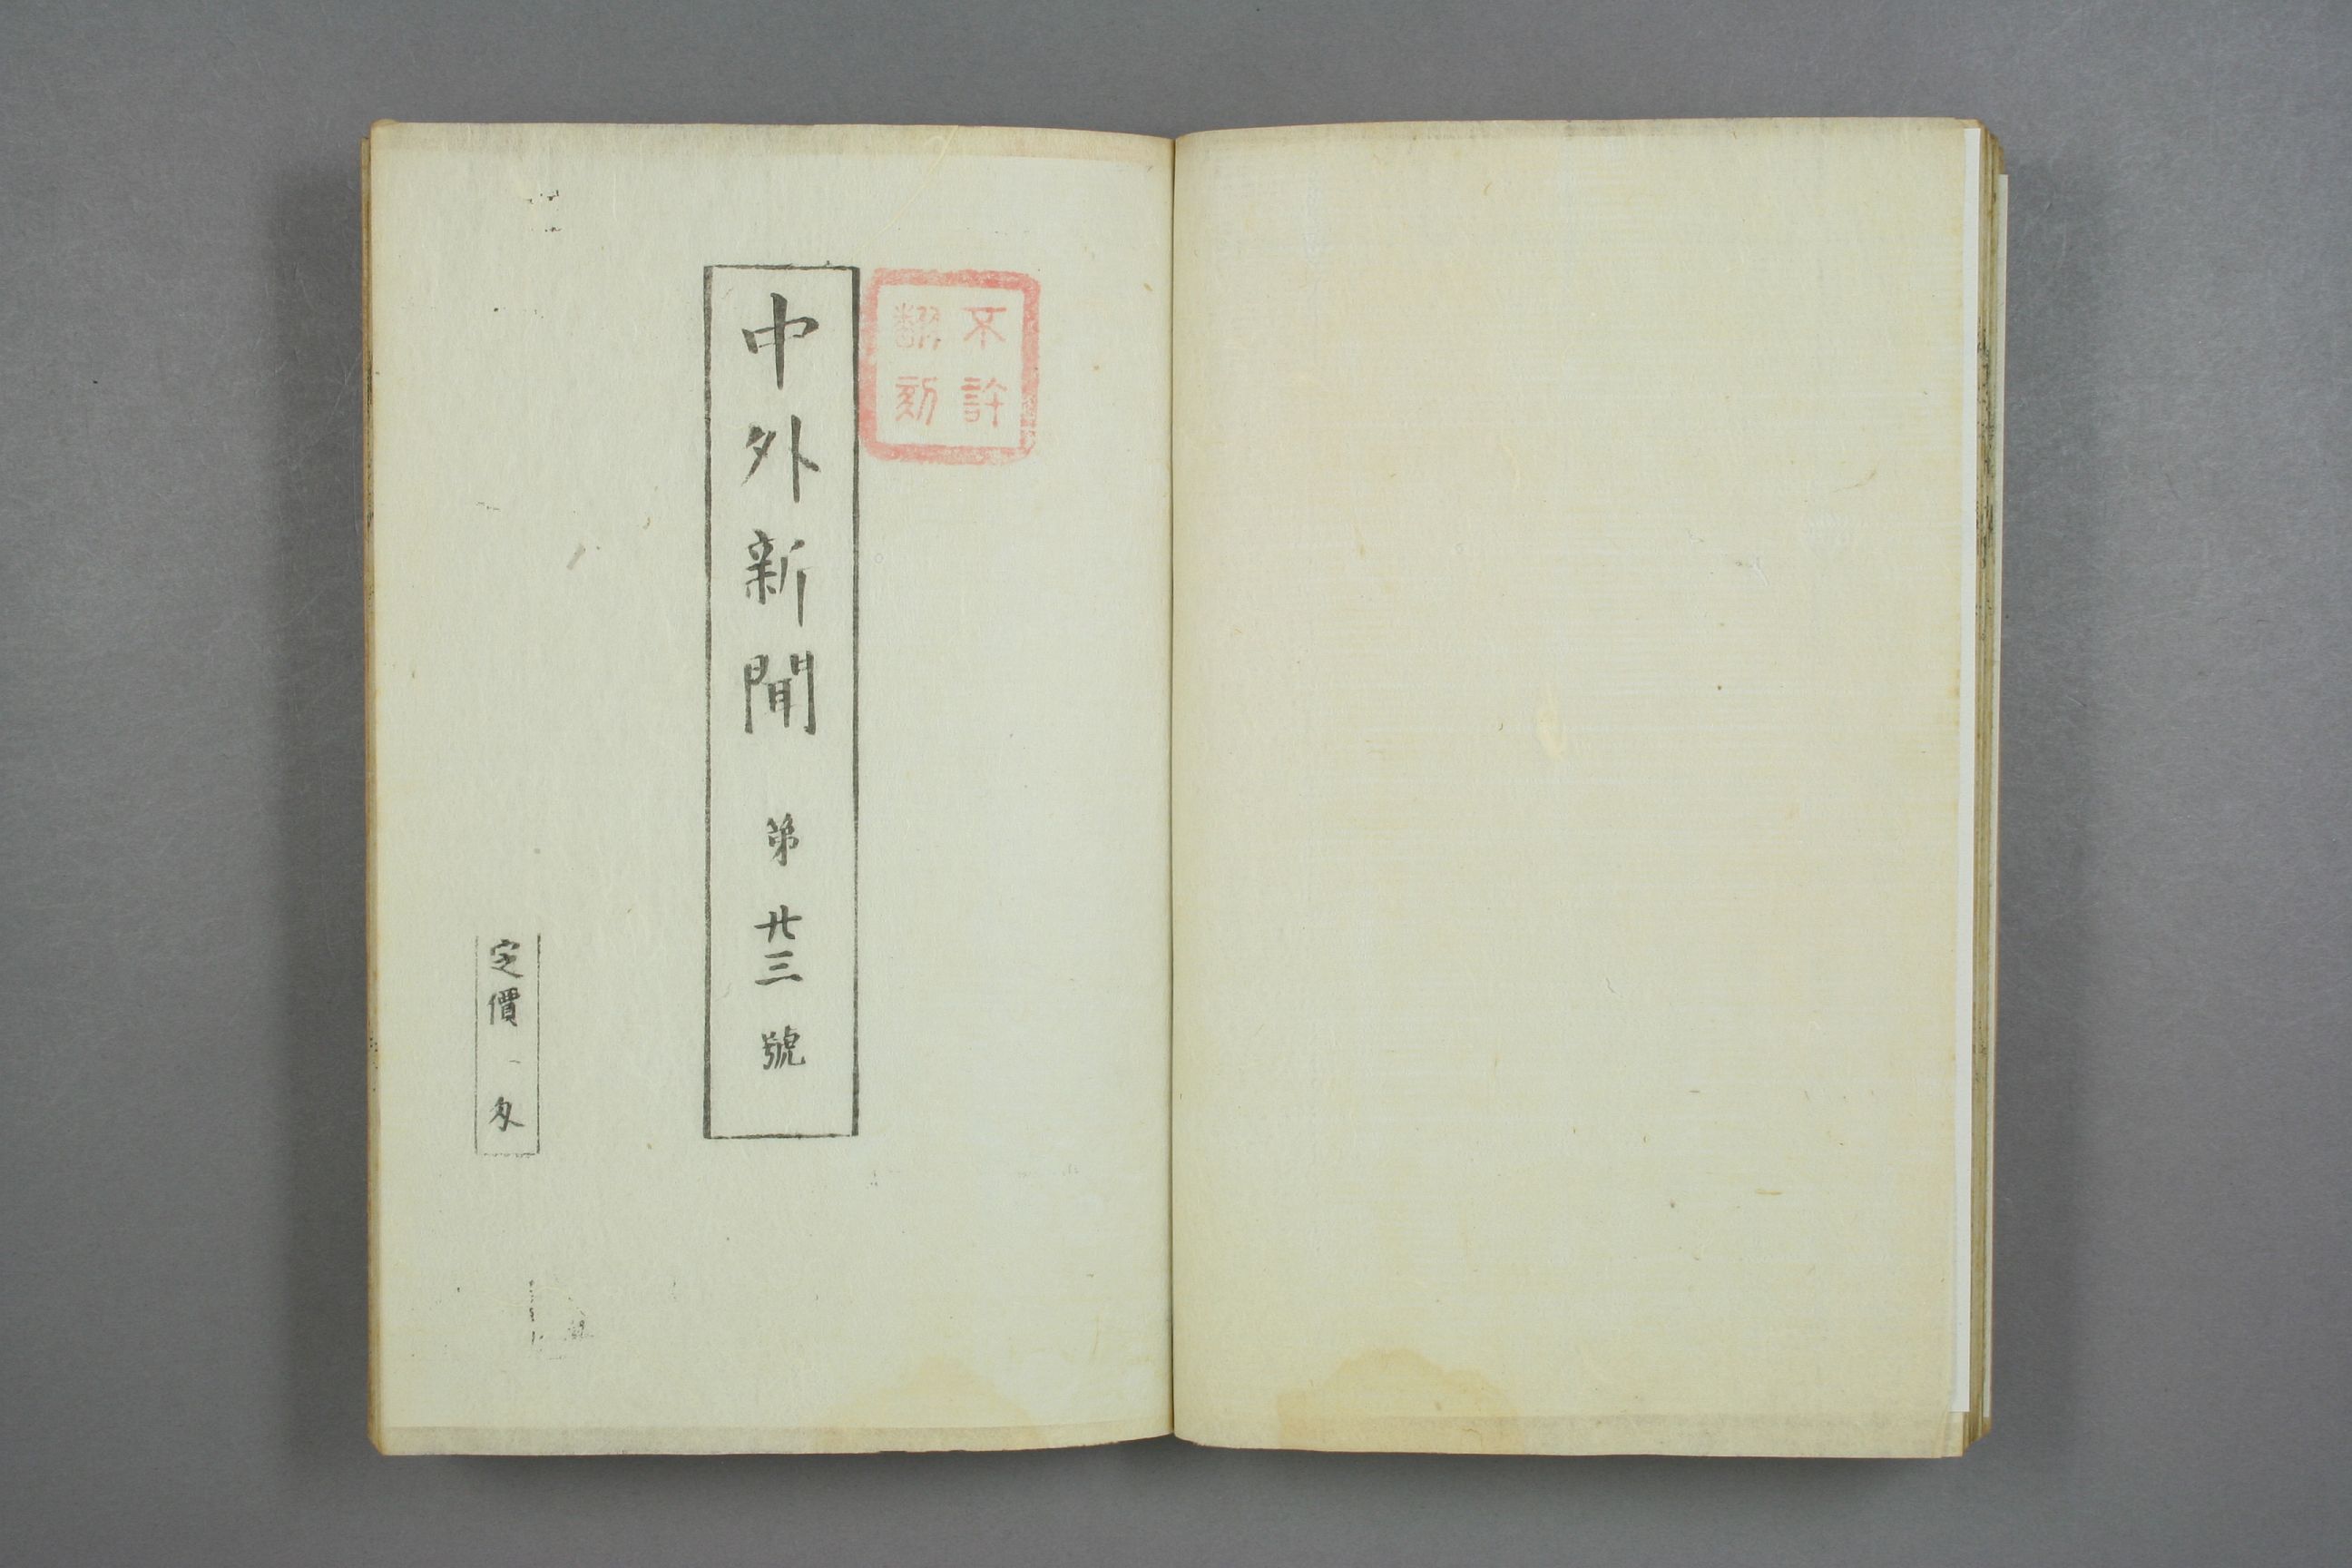 不許
翻刻
中外新聞 第廿三號
定價一匁